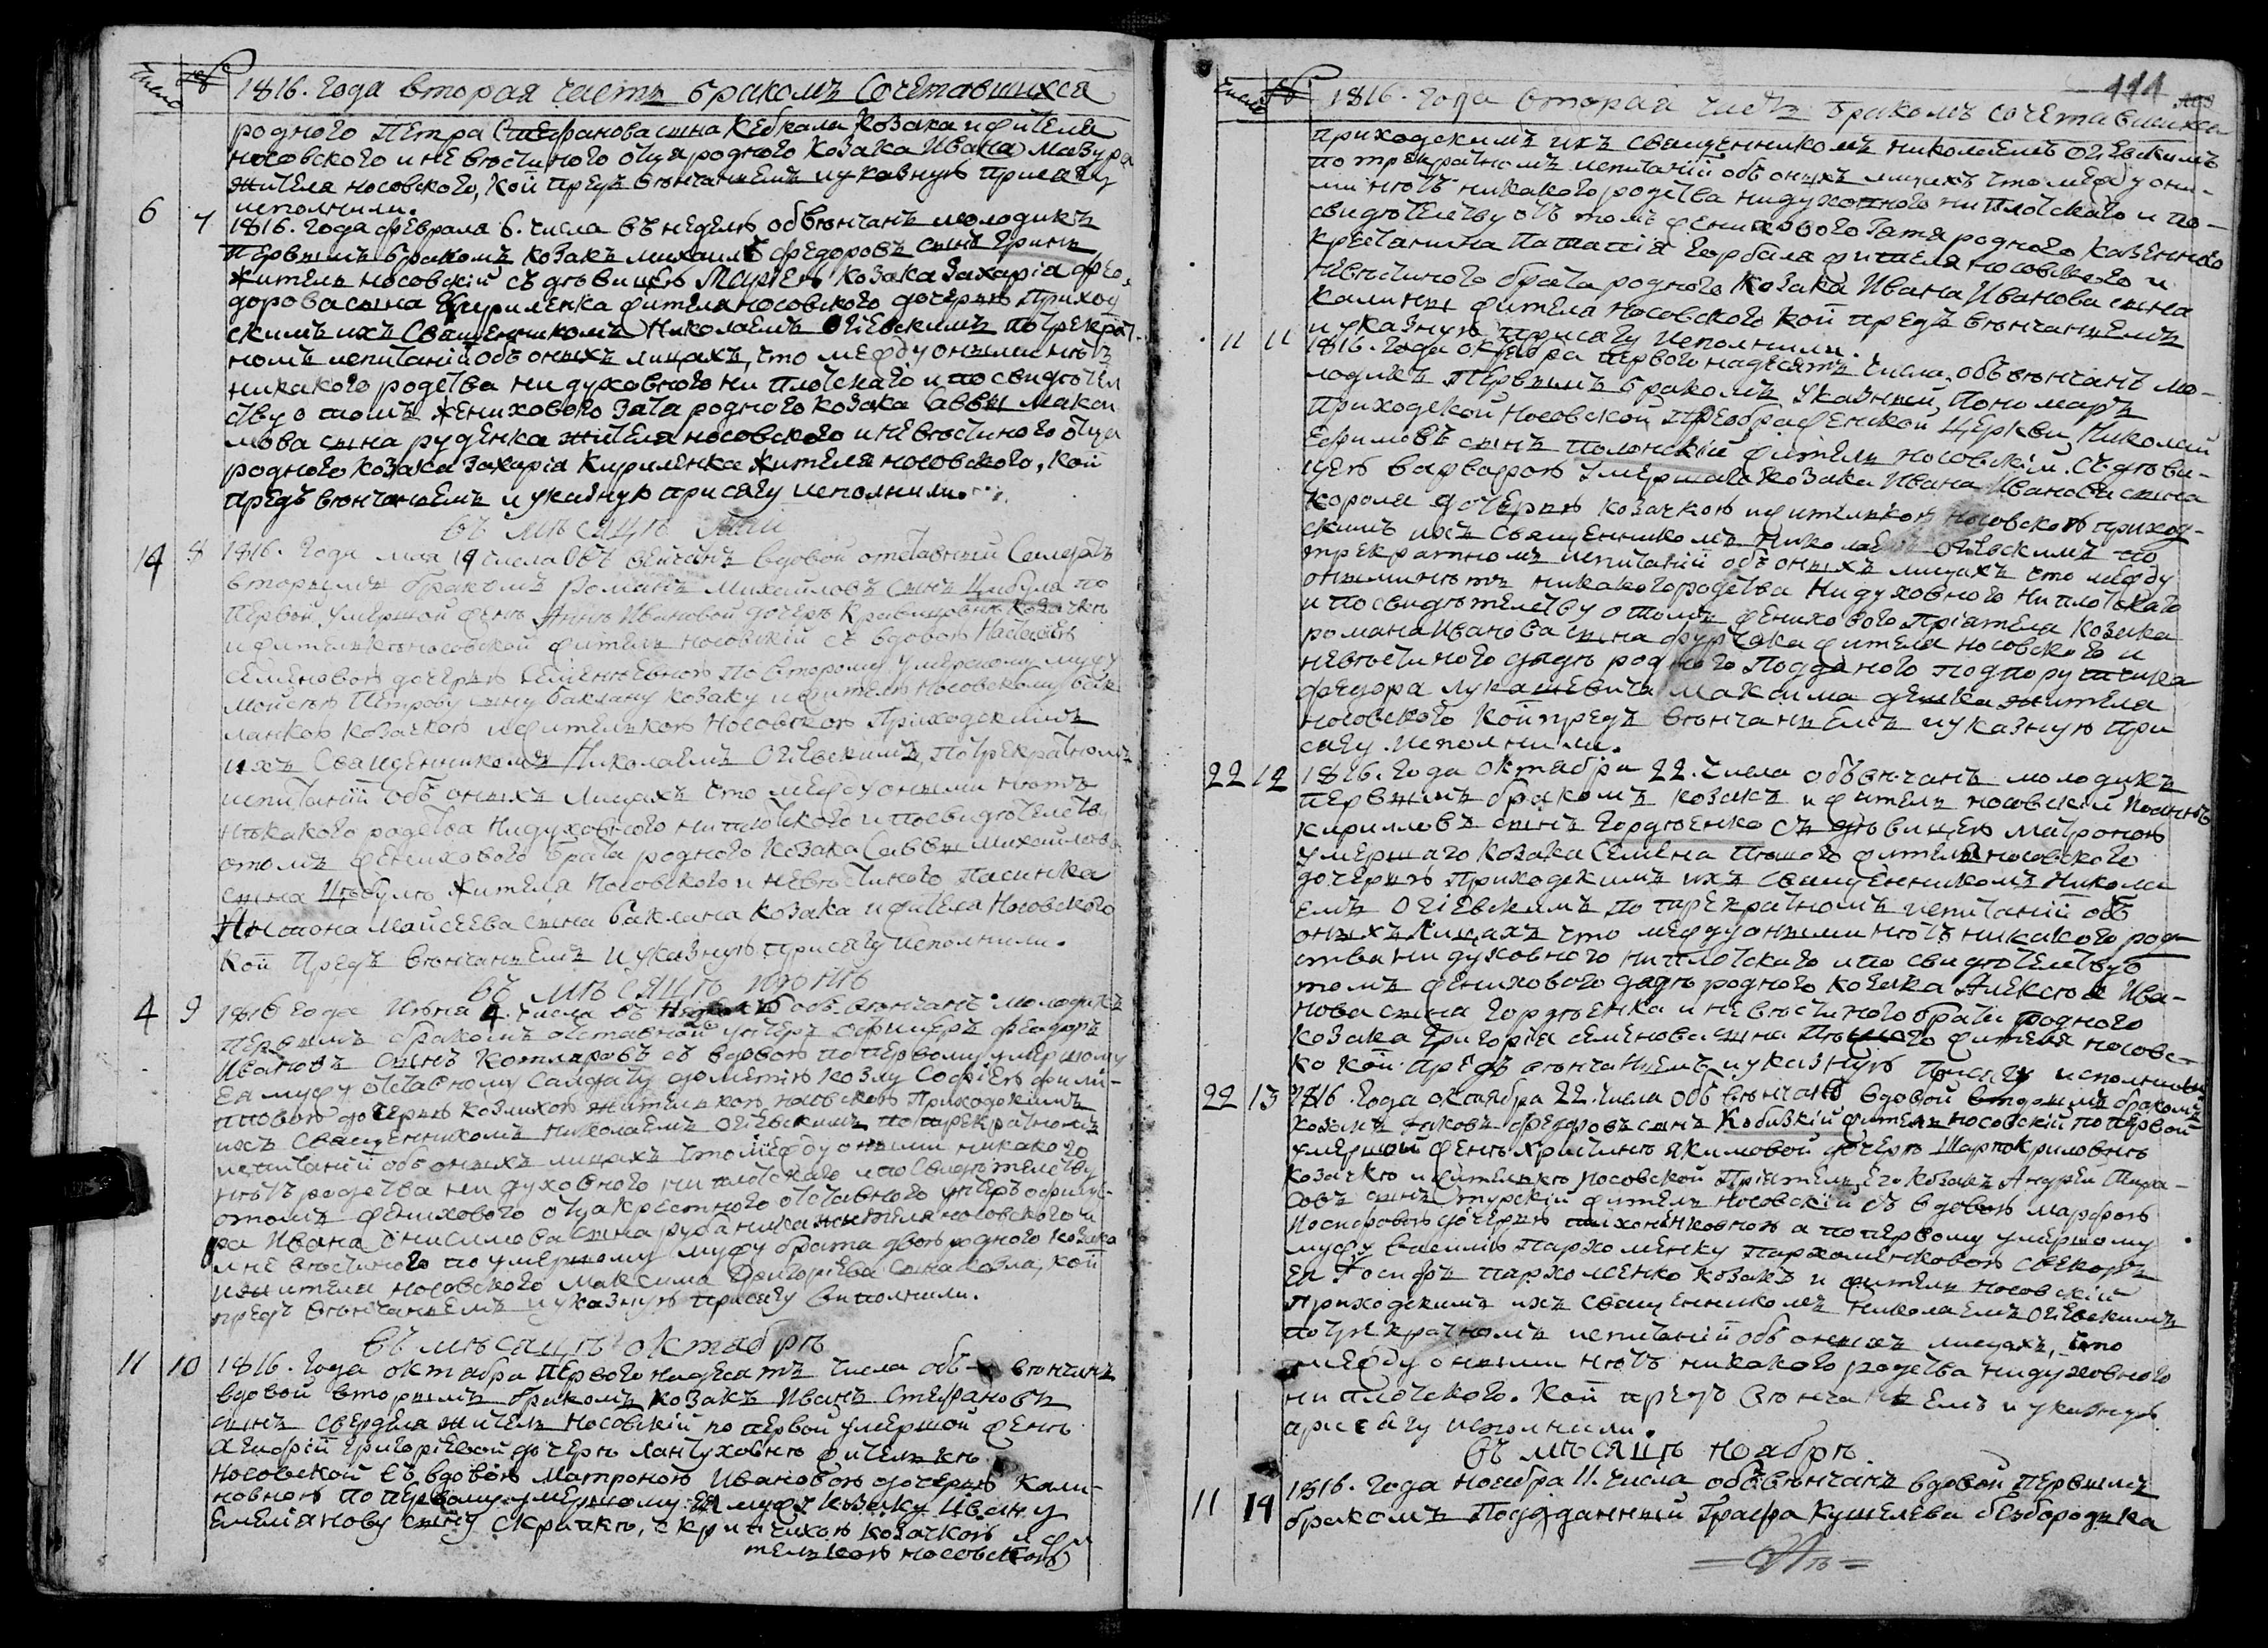 число №
1816. Года вторая часть бракомъ сочетавшихся
родного Петра Стефанова сына Кебкала козака и жителя
носовского и невестиного отца родного козака Ивана Мазура
жителя носовского, кои предъ венчаниемъ и указную присягу
исполнили.
6 7 1816. Года февраля 6. числа въ неделю обвенчанъ молодикъ
первымъ бракомъ козакъ михаилъ федоровъ сынъ Гринь
житель носовскій съ девицею Маріею козака Захарія фео-
дорова сына Куриленка жителя носовского дочерью Приход
скимъ ихъ Священникомъ Николаемъ Огіевскимъ по трекрат-
номъ испитаніи объ оныхъ лицахъ, что между оными нетъ
никакого родства ни духовного ни плотского и по свидетел
ству о томъ женихового зятя родного козака Саввы Маком
мова сына руденка жителя носовского и невестиного отца
родного козака Захарія Кириленка жителя носовского, кои
предъ венчаниемъ и указную присягу исполнили.
въ месяце Маи
14 8 1816. Года мая 14 числа Обвенчанъ вдовой отставный Солдатъ
вторымъ бракомъ Романъ Михайловъ сынъ Цибуля по
первой умершой жене Анне Ивановой дочере Кравцовне козачке
и жителке носовской житель носовскій съ вдовою Настасіею
Семеновою дочерью по второму умершому мужу
Мойсею Петрову сыну баклану козаку и жителю носовскому бак
ланкою козачкою и жителькою носовскою Приходскимъ
ихъ Священникомъ Николаемъ Огіевскимъ, по трекратномъ
испитаніи объ оныхъ лицахъ что между оными нетъ
никакого родства ни духовного ни плотского и по свидетелству
о томъ женихового брата родного козака Саввы Михайлова
сына Цыбули жителя Носовского и невестиного пасинка
Антона Мойсеева сына баклана козака и жителя Носовского
кои предъ венчаниемъ и указную присягу исполнили.
въ месяце июне
4 9 1816 Года Июня 4. числа въ неделю обвенчанъ молодикъ
первымъ бракомъ отставной унтеръ офицеръ феодоръ
Ивановъ сынъ Котляровъ съ вдовою по первому умершому
ея мужу отставному Салдату Дометію козлу Софіею фили-
повою дочерью козлихою жителькою носовскою Приходскимъ
ихъ Священникомъ Николаемъ Огіевскимъ по трекратномъ
испитаніи объ оныхъ лицахъ что между оными никакого
нетъ родства ни духовного ни плотского и по свидетелству
о томъ женихового отца крестного отставного унтеръ офице-
ра Ивана Онисимова сына рубаника жителя носовского и
и невестиного по умершому мужу брата двоюродного козака
и жителя носовского Максима Григоріева сына козла, кои
предъ венчаниемъ и указную присягу виполнили.
въ месяце октябре
11 10 1816. Года октября первого надесять числа обвенчанъ
вдовой вторымъ бракомъ козакъ Иванъ Стефановъ
сынъ Свердела житель носовскій по первой умершой жене
Агафіи Григоріевой дочере Лантуховне жителке
носовской съ вдовою Матроною Ивановою дочерью Кали-
новною по первому умершому ея мужу козаку Ивану
Емеліанову сыну Скрипке, скрипчихою козачкою и жи
телькою носовскою
число №
1816. года вторая часть бракомъ сочетавшихся
111
приходскимъ ихъ священникомъ николаемъ огіевскимъ
по трекратномъ испитаніи объ оныхъ лицахъ что между они-
ми нетъ никакого родства ни духовного ни плотского и по-
свидетелству объ томъ женихового зятя родного казенного
крестьянина Горбаля жителя носовского и
невестиного брата родного козака Ивана Иванова сына
калины жителя носовского кои предъ венчаниемъ
и указную присягу исполнили.
11 11 1816. Года октября первого надесять числа, обвенчанъ мо-
лодикъ первымъ бракомъ указный, Пономарь
Приходской носовской Преображенской Церкви Николай
Ефимовъ сынъ полонскій житель носовскій. съ деви-
цею варварою умершаго козака Ивана Иванова сына
короля дочерью козачкою и жителькою носовскою приход-
скимъ ихъ священникомъ Николаемъ Огіевскимъ по
трекратномъ испитаніи объ оныхъ лицахъ что между
оными нетъ никакого родства ни духовного ни плотского
и по свидетелству о томъ женихового пріятеля козака
романа Иванова сына фурсака жителя носовского и
невестиного дядя родного подданого подпорутчика
федора лукашевича Максима жителя
носовского кои предъ венчаниемъ и указную при
сягу исполнили.
22 12 1816. Года октября 22. числа обвенчанъ молодикъ
первымъ бракомъ козакъ и житель носовскій Иоаннъ
кирилловъ сынъ Гордеенко съ девицею Матроною
умершаго козака Семена жителя носовского
дочерью Приходскимъ ихъ священникомъ Никола
емъ Огіевскимъ по трекратномъ испитаніи объ
оныхъ лицахъ что между оными нетъ никакого род
ства ни духовного ни плотского и по свидетелству о
томъ женихового дяде родного козака Алексея Ива-
нова сына Гордеенка и невестиного брата родного
козака Григорія семенова сына жителя носовс-
ко кои предъ венчаниемъ и указную присягу исполнили
22 13 1816. Года октября 22. числа обвенчанъ вдовой вторымъ бракомъ
козакъ Яковъ федоровъ сынъ Кобизкій житель носовскій по первой
умершой жене Христине Якимовой дочере
козачке и жителке носовской Пріятель его козакъ Андрей Тара-
совъ сынъ Стурскій житель носовскій съ вдовою марфою
Иосифовою дочерью а по первому умершому
мужу василію пархоменку пархоменковою свекоръ
ея Госифъ пархоменко козакъ и житель носовскій
приходскимъ ихъ священникомъ николаемъ огіевскимъ
по трекратномъ испитаніи объ оныхъ лицахъ, что
между оными нетъ никакого родства ни духовного
ни плотского. кои предъ венчаниемъ и указную
присягу исполнили.
въ месяце ноябре
11 14 1816. года ноября 11. числа обвенчанъ вдовой первымъ
бракомъ Подданный Графа Кушелева безбородька